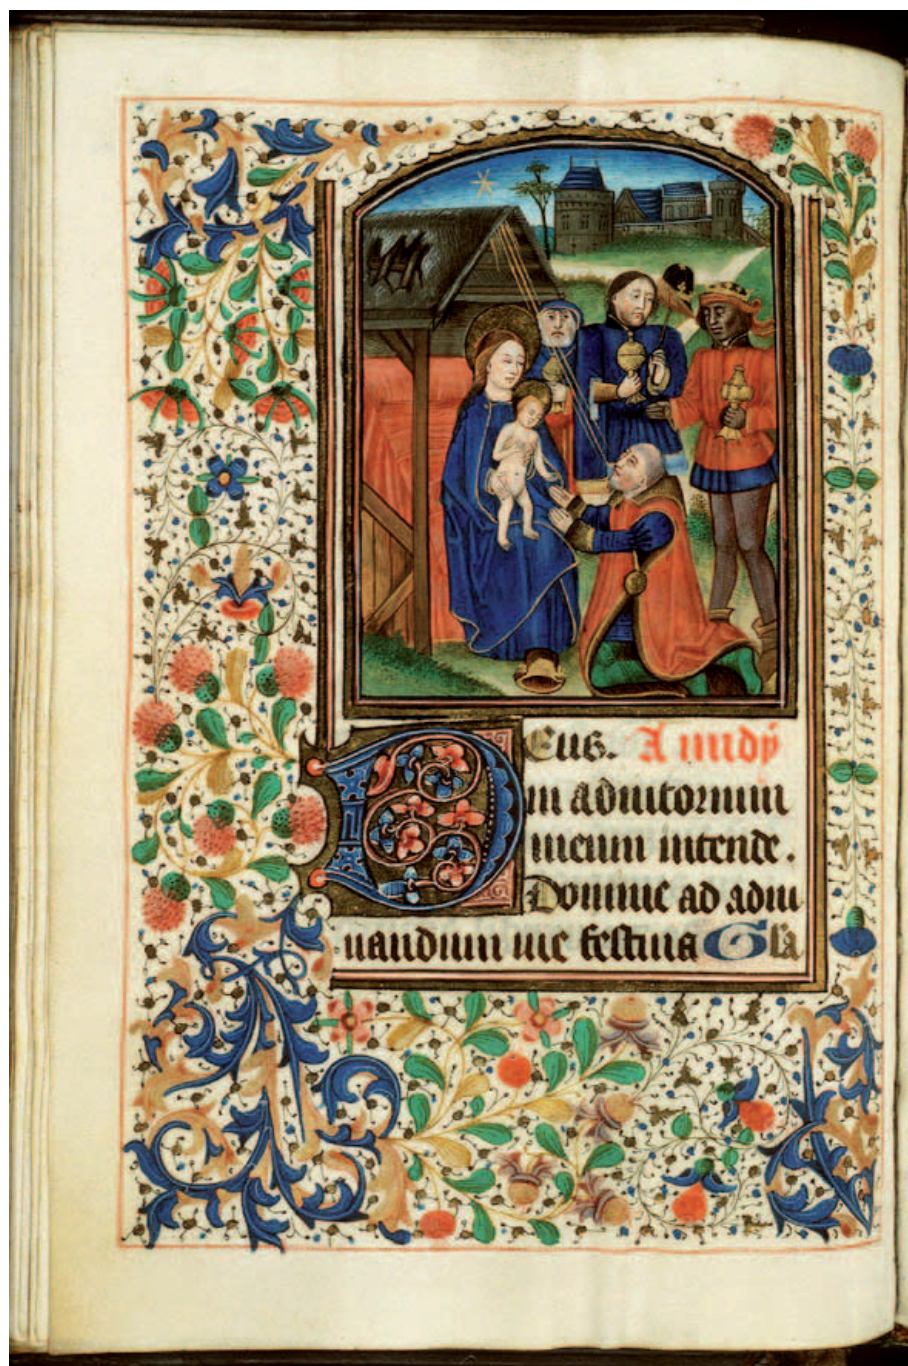 Deus. A midy
in adiutorium
meum intende.
Domine ad adiu
uandum me festina Gla